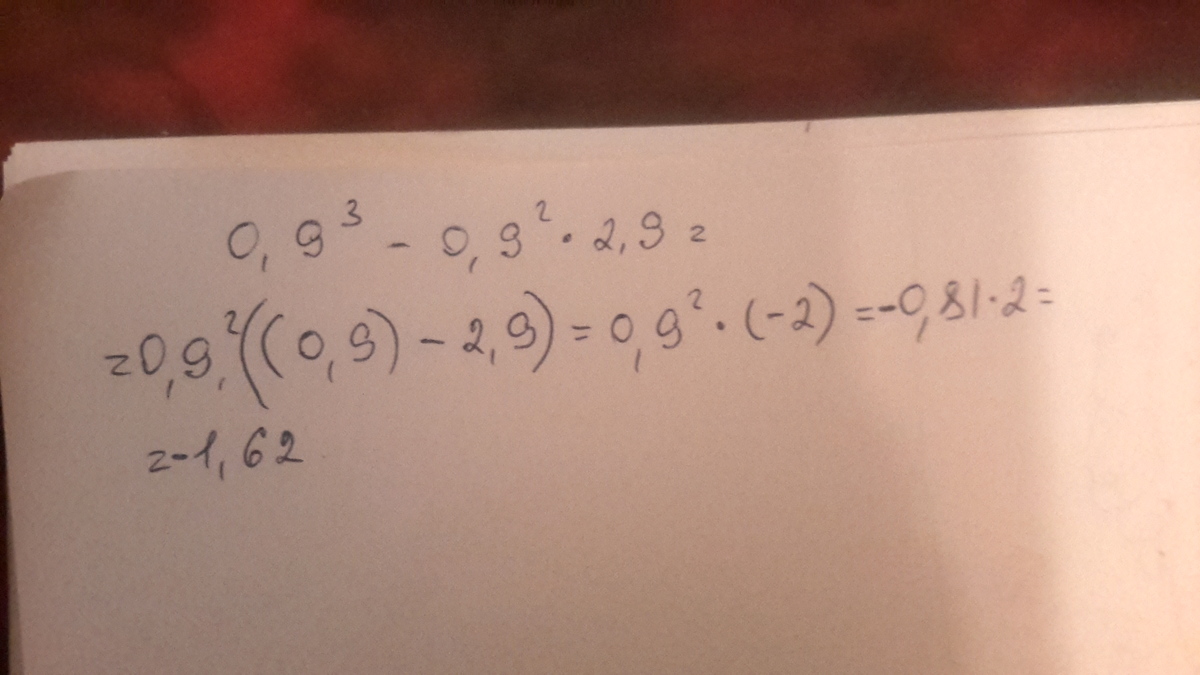 0,9³ - 0,9² · 2,9 =
= 0,9²((0,9) - 2,9) = 0,9² · (-2) = -0,81 · 2 =
= -1,62